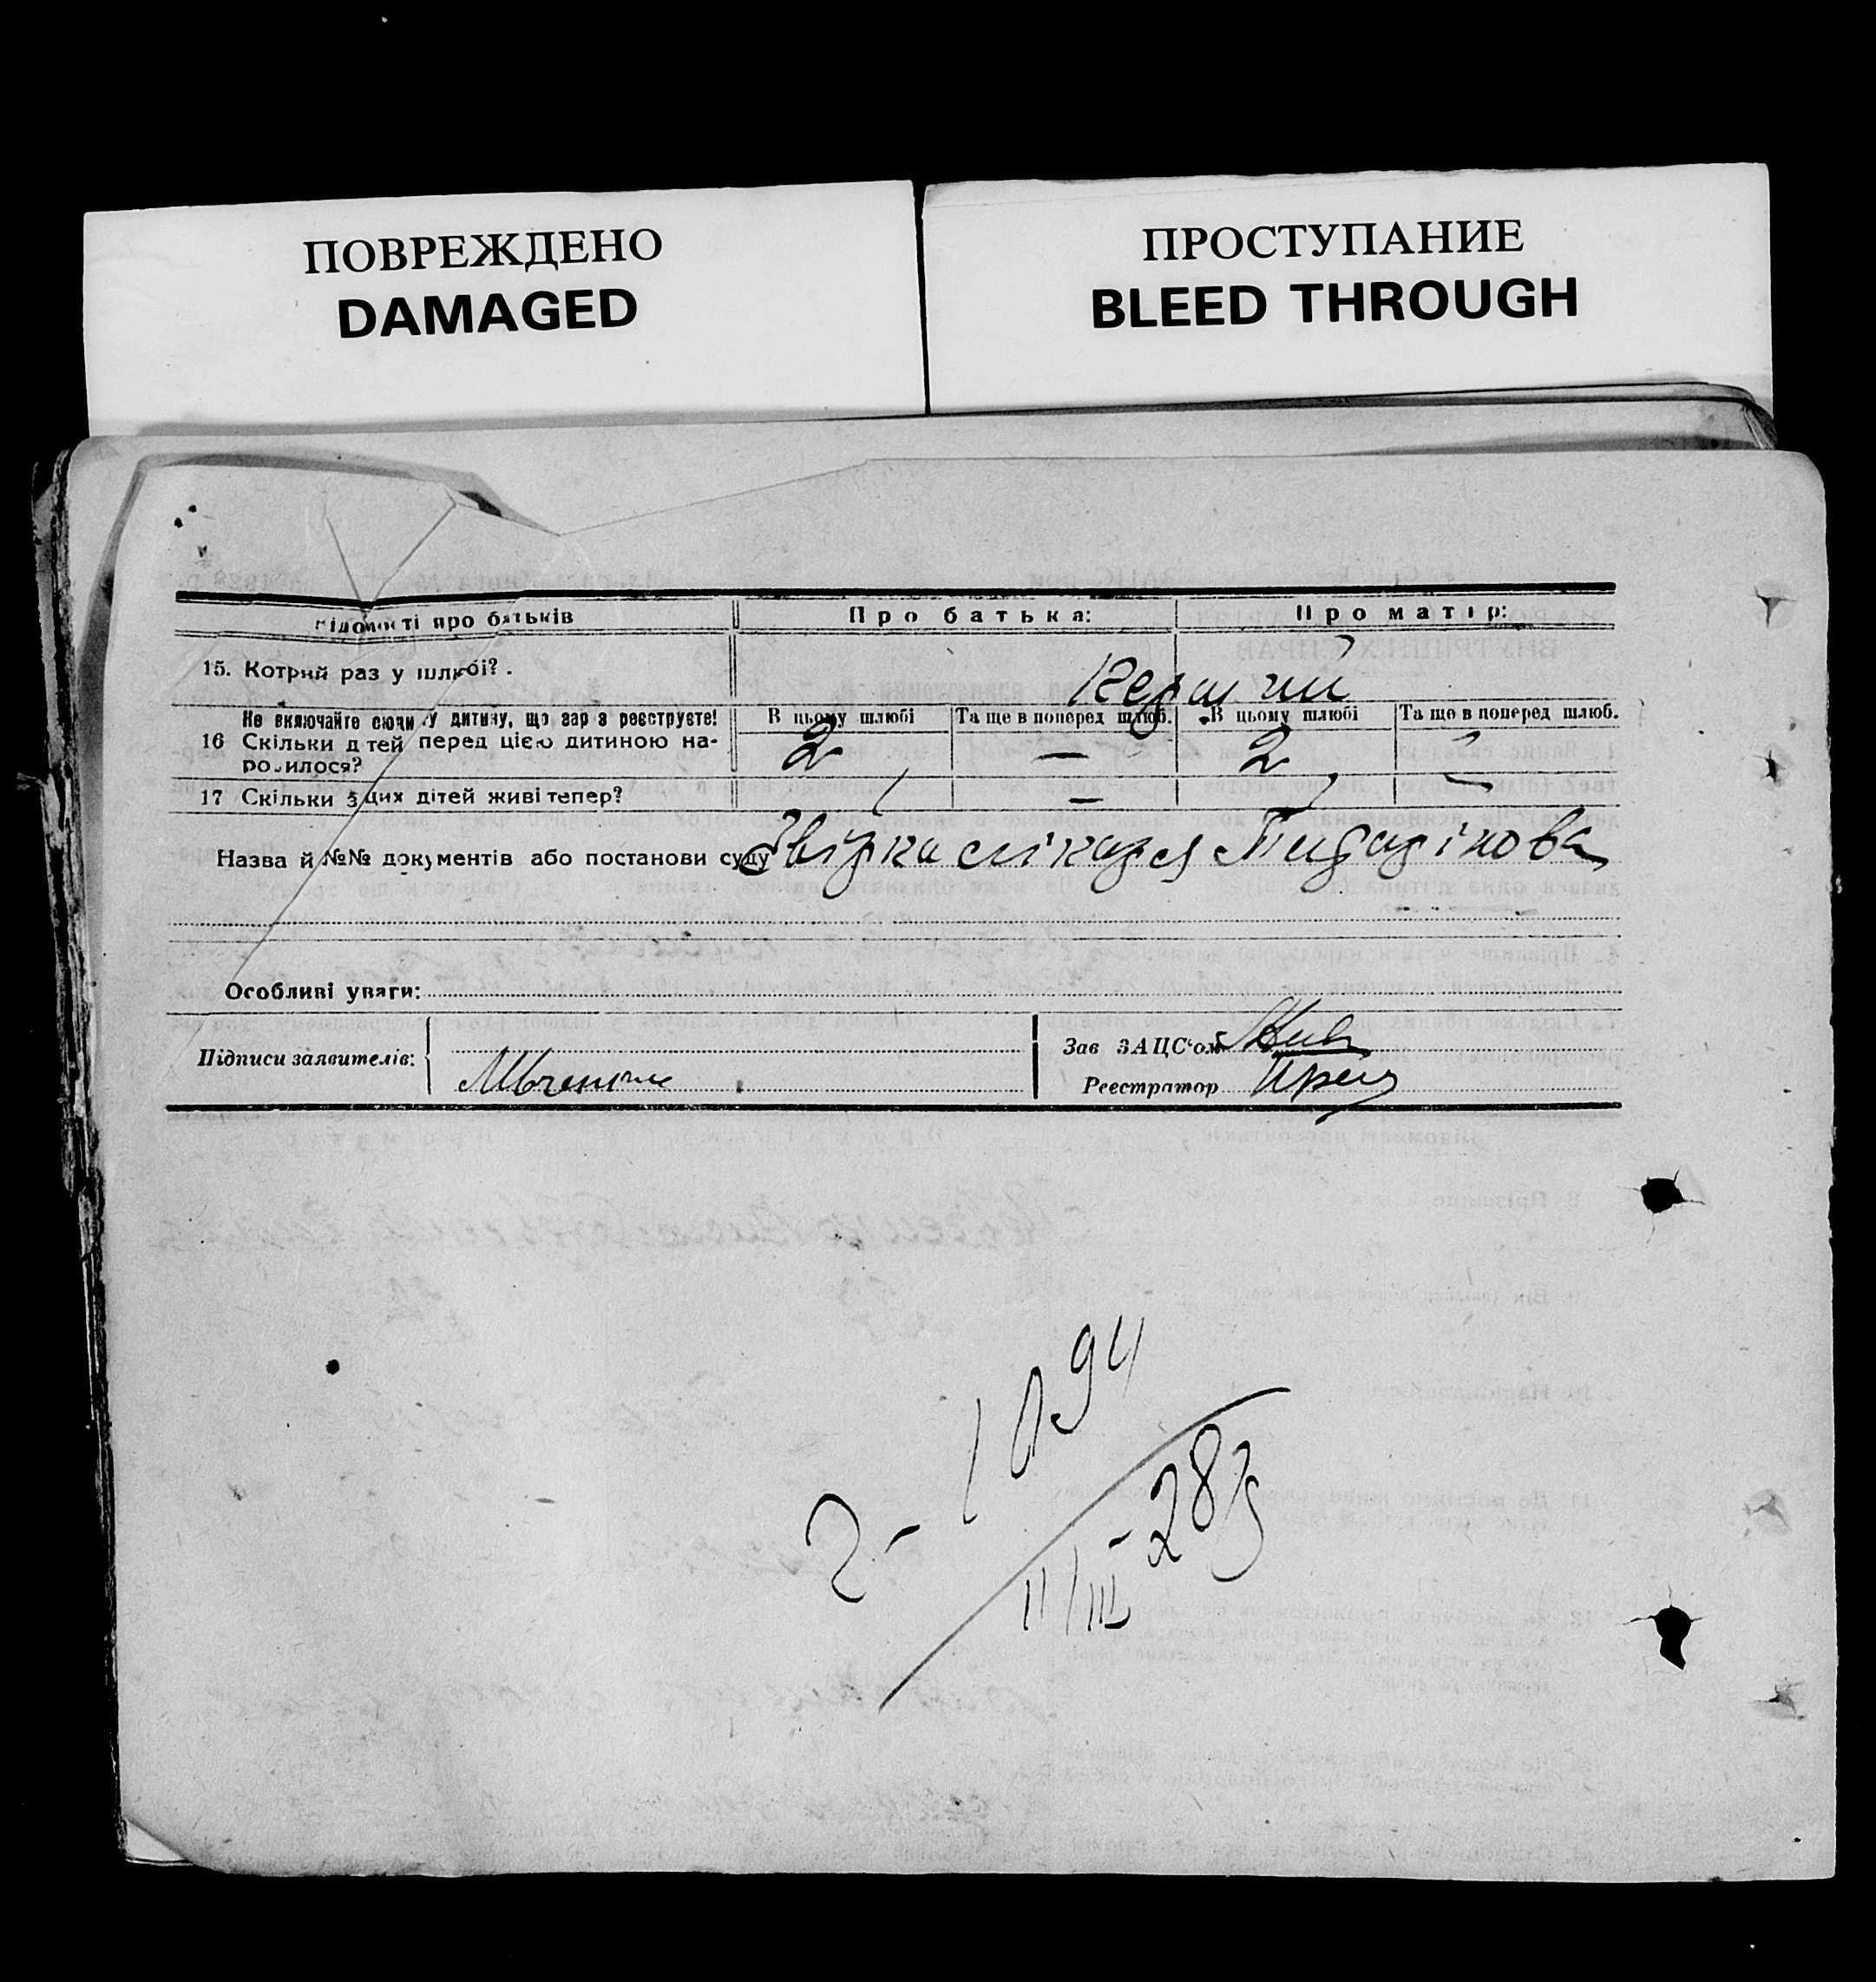 ПОВРЕЖДЕНО
DAMAGED
ПРОСТУПАНИЕ
BLEED THROUGH
Відомості про батьків Про батька: Про матір:
15. Котрий раз у шлюбі?. Перший
Не включайте сюди цю дитину, що зараз реєструєте! В цьому шлюбі Та ще в поперед шлюб. В цьому шлюбі Та що в поперед шлюб.
16 Скільки дітей перед цією дитиною на- 2 — 2 —
родилося?
17 Скільки з цих дітей живі тепер? —
Назва й №№ документів або постанови суду лікаря
Особливі уваги:
Підписи заявителів:
Зав ЗАЦС'ом
Реєстратор
2- 1094
11/III -28